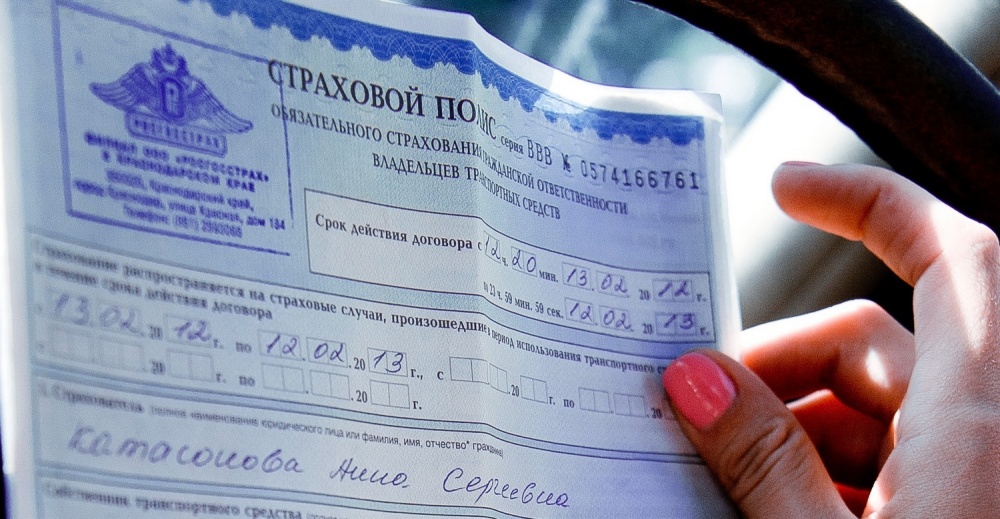 РОСГОССТРАХ
ФИЛИАЛ ООО «РОСГОССТРАХ»
В КРАСНОДАРСКОМ КРАЕ
Краснодарский край,
улица Красная, дом 184
Телефон: (861)
СТРАХОВОЙ ПОЛИС серия ВВВ № 0574166761
ОБЯЗАТЕЛЬНОГО СТРАХОВАНИЯ ГРАЖДАНСКОЙ ОТВЕТСТВЕННОСТИ
ВЛАДЕЛЬЦЕВ ТРАНСПОРТНЫХ СРЕДСТВ
Срок действия договора с 12 ч. 20 мин. 13.02 2012 г.
по 23 ч. 59 мин. 59 сек. 12.02 2013 г.
Страхование распространяется на страховые случаи, произошедшие в период использования транспортного
в течение срока действия договора
13.02.2012 г. по 12.02.2013 г., с . .20 г. по . .20
. .20 г. по . .20 г.
1. Страхователь (полное наименование юридического лица или фамилия, имя, отчество* гражданина)
Катасонова Анна Сергеевна
Собственник транспортного средства